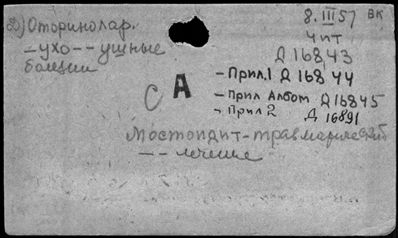 Оторинолар.
8.III57 ВК
- ухо - - ушные
болезни
чит
Д 16843
- Прил.1 Д 16844
С А
- Прил Альбом Д 16845
- Прил 2 Д 16891
Мастоидит - травматический
- - лечение